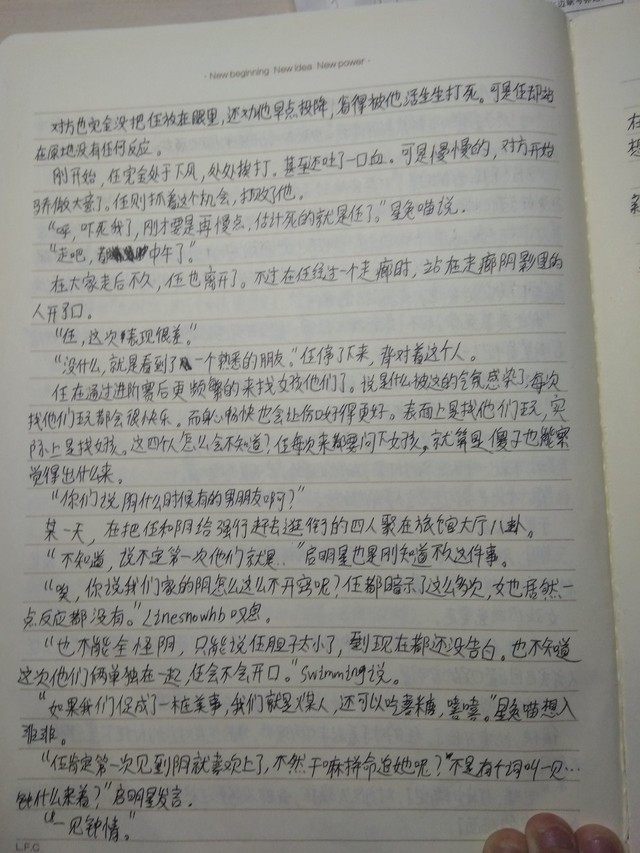 · New beginning  New idea  New power ·
对方也完全没把任放在眼里，还劝他早点投降，省得被他活生生打死。可是任却站
在原地没有任何反应。
刚开始，任完全处于下风，处处挨打。甚至还吐了一口血。可是慢慢的，对方开始
骄傲大意了。任则抓着这个机会，打败了他。
“呼，吓死我了，刚才要是再慢点，估计死的就是任了。”星兔喵说.
“走吧，都中午了。”
在大家走后不久，任也离开了。不过在任经过一个走廊时，站在走廊阴影里的
人开了口。
“任，这次表现很差。”
“没什么，就是看到了一个熟悉的朋友。”任停了下来，背对着这个人。
任在通过进阶赛后更频繁的来找女孩他们了。说是什么被这的气氛感染了，每次
找他们玩都会很快乐。而身心畅快也会让伤口好得更好。表面上是找他们玩，实
际上是找女孩。这四个人怎么会不知道？任每次来都要问下女孩，就算是傻子也能察
觉得出什么来。
“你们说阴什么时候有的男朋友啊？”
某一天，在把任和阴给强行赶去逛街的四人聚在旅馆大厅八卦。
“不知道，说不定第一次他们就是…”启明星也是刚知道不久这件事。
“唉，你说我们家的阴怎么这么不开窍呢？任都暗示了这么多次，女也居然一
点反应都没有。”Linesnowhb叹息.
“也不能全怪阴，只能说任胆子太小了，到现在都还没告白。也不知道
这次他们俩单独在一起，任会不会开口。”Swimming说。
“如果我们促成了一桩美事，我们就是媒人，还可以吃喜糖，嘻嘻。”星兔喵想入
非非。
“任肯定第一次见到阴就喜欢上了，不然干嘛拼命追她呢？”“不是有个词叫一见…
钟什么来着？”启明星发言.
“一见钟情。”
L.F.C